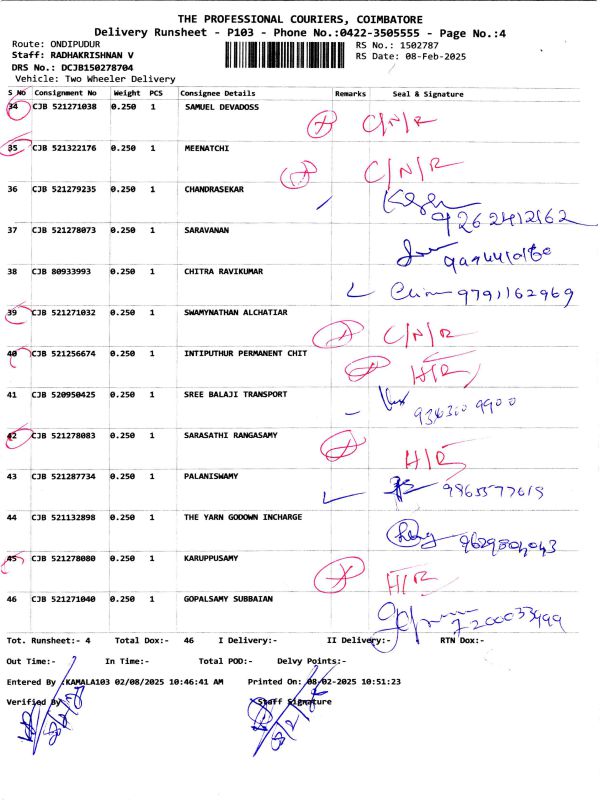 THE PROFESSIONAL COURIERS, COIMBATORE
Delivery Runsheet - P103 - Phone No.:0422-3505555 - Page No.:4
Route: ONDIPUDUR RS No.: 1502787
Staff: RADHAKRISHNAN V RS Date: 08-Feb-2025
DRS No.: DCJB150278704
Vehicle: Two Wheeler Delivery
S No Consignment No Weight PCS Consignee Details Remarks Seal & Signature
34 CJB 521271038 0.250 1 SAMUEL DEVADOSS
C/N/R
35 CJB 521322176 0.250 1 MEENATCHI
C/N/R
36 CJB 521279235 0.250 1 CHANDRASEKAR
9262412162
37 CJB 521278073 0.250 1 SARAVANAN
38 CJB 80933993 0.250 1 CHITRA RAVIKUMAR
9791162969
39 CJB 521271032 0.250 1 SWAMYNATHAN ALCHATIAR
C/N/R
40 CJB 521256674 0.250 1 INTIPUTHUR PERMANENT CHIT
H/R
41 CJB 520950425 0.250 1 SREE BALAJI TRANSPORT
42 CJB 521278083 0.250 1 SARASATHI RANGASAMY
H/R
43 CJB 521287734 0.250 1 PALANISWAMY
44 CJB 521132898 0.250 1 THE YARN GODOWN INCHARGE
45 CJB 521278080 0.250 1 KARUPPUSAMY
H/R
46 CJB 521271040 0.250 1 GOPALSAMY SUBBAIAN
7200033999
Tot. Runsheet:- 4 Total Dox:- 46 I Delivery:- II Delivery:- RTN Dox:-
Out Time:- In Time:- Total POD:- Delvy Points:-
Entered By :KAMALA103 02/08/2025 10:46:41 AM Printed On: 08-02-2025 10:51:23
Verified By Staff Signature